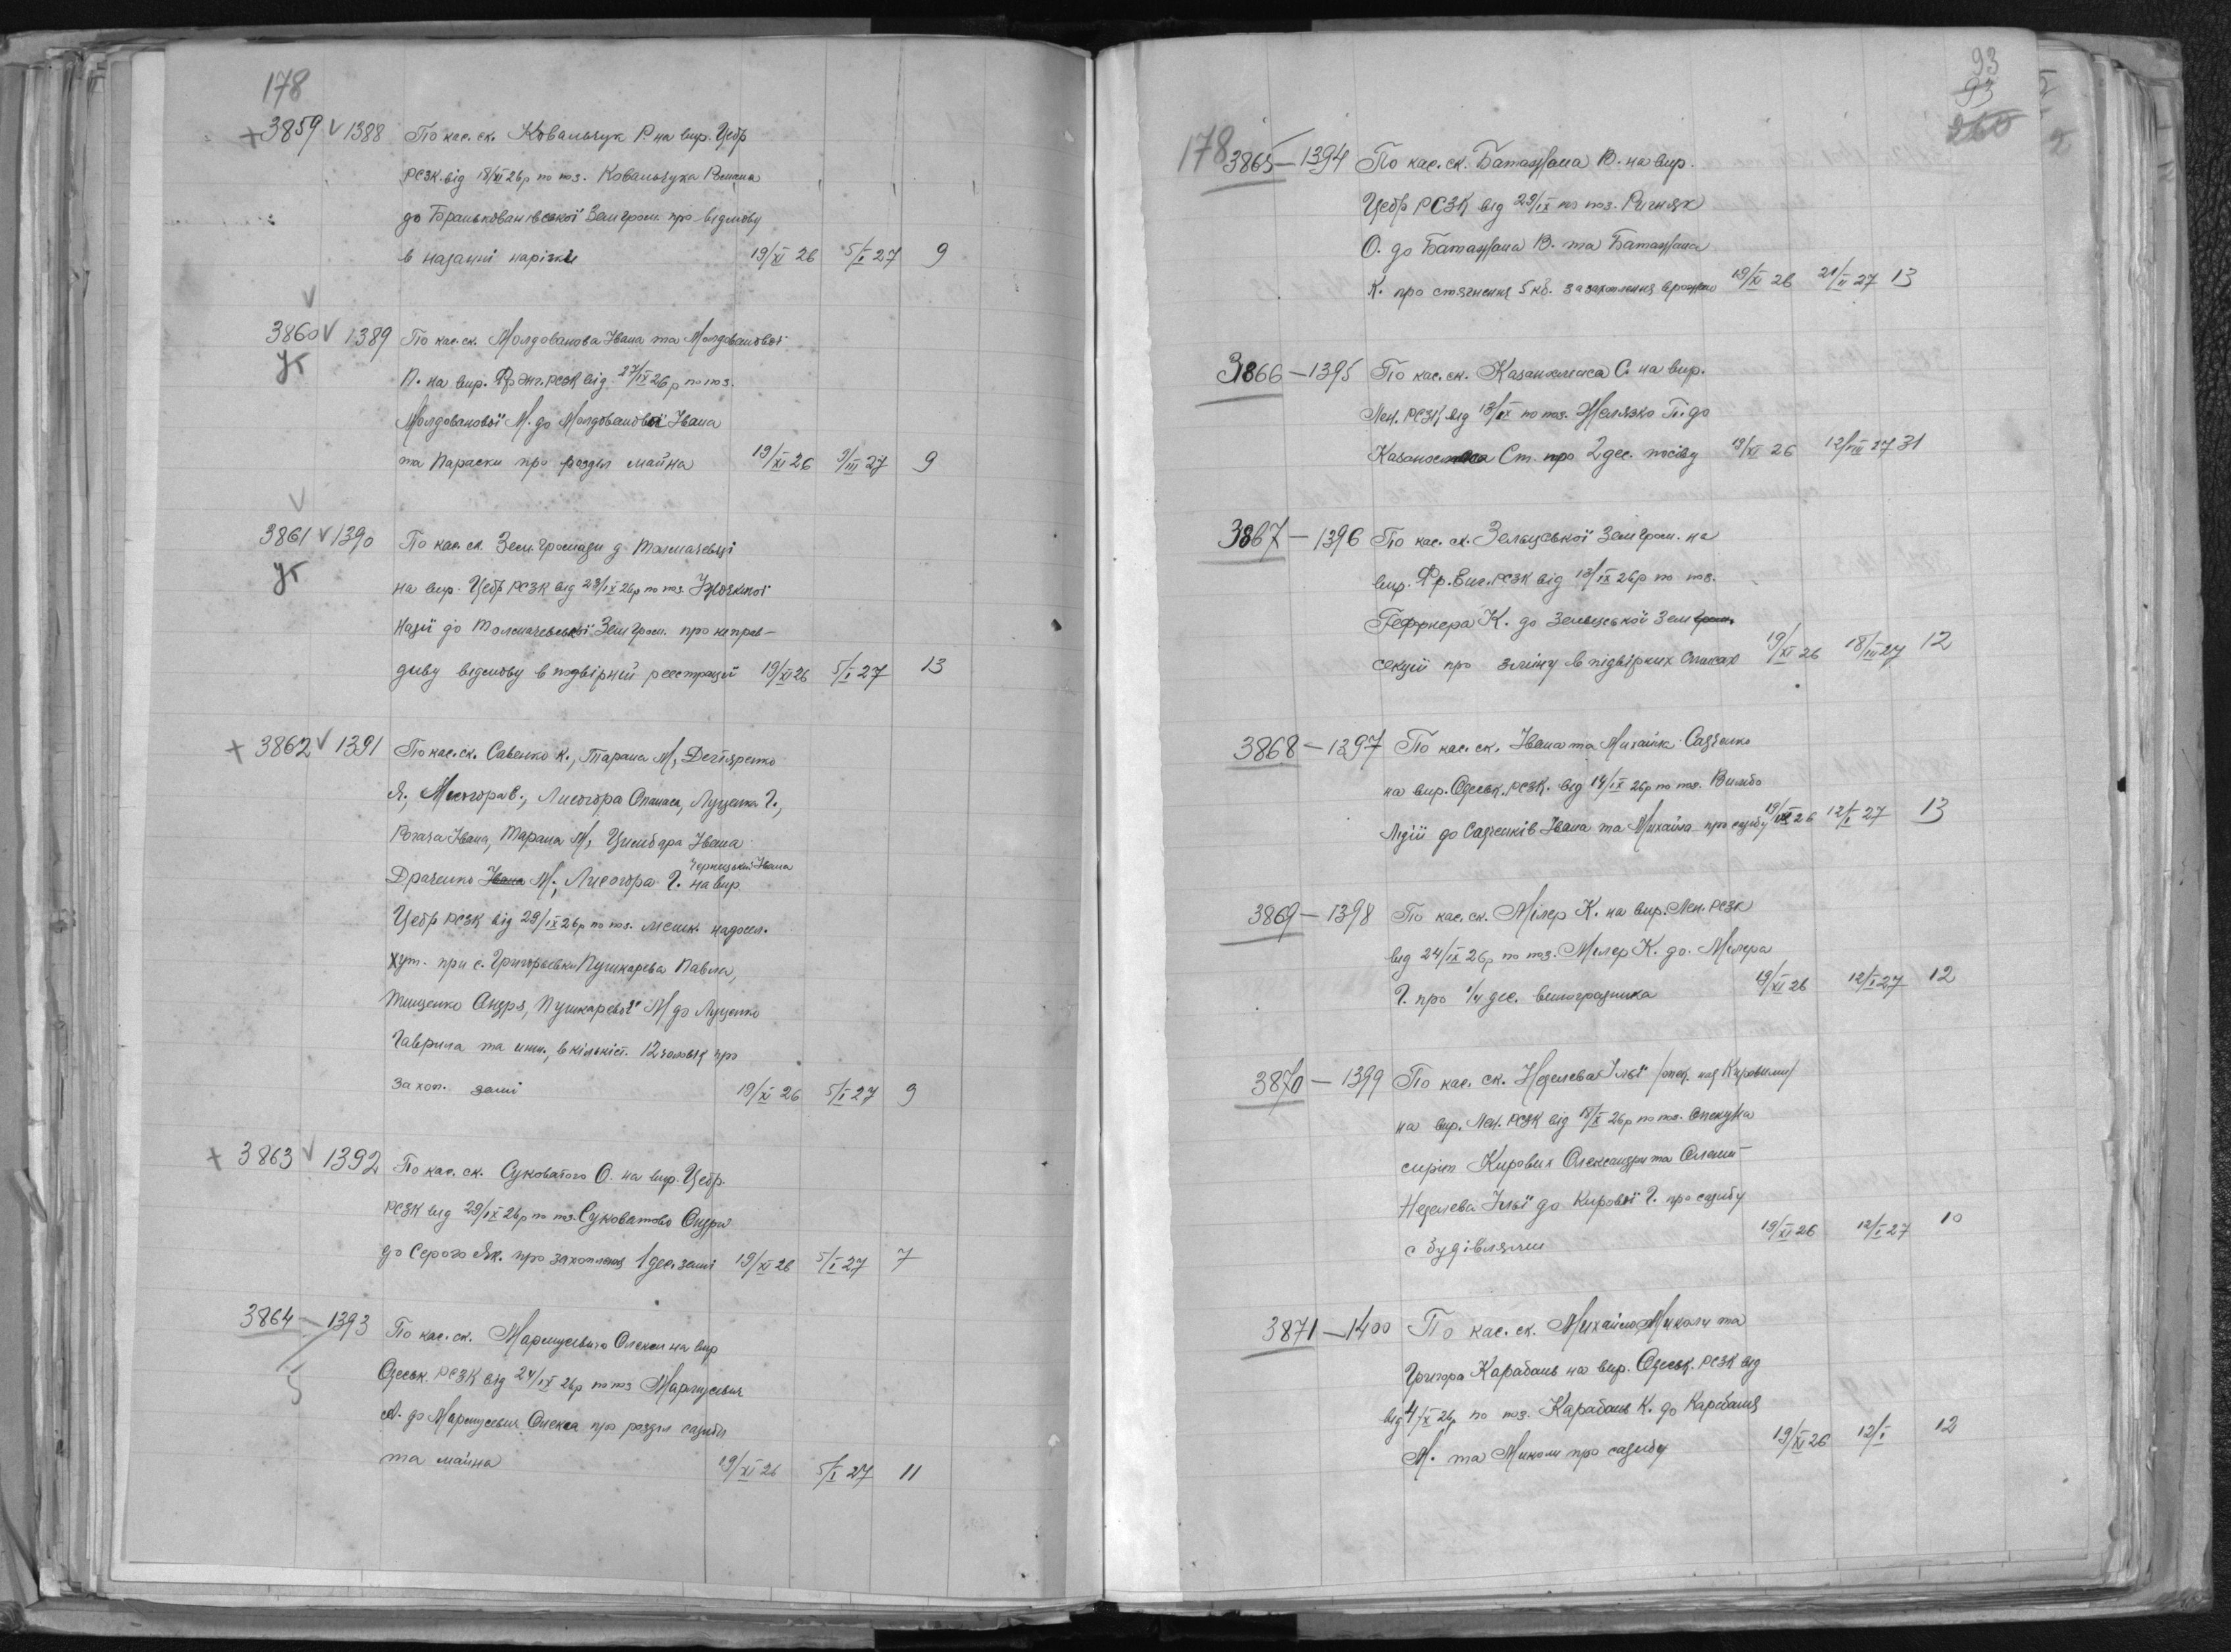 178
3859 V 1388 По кас. ск. Ковальчук Р. на вир. Цебр
РСЗК від 18/XI 26р по поз. Ковальчука Романа
до Браньковановської Земгром. про відмову
в наданні нарізки 19/XI 26 5/I 27 9
3860 V 1389 По кас. ск. Молдованова Івана та Молдованової
П. на вир. РСЗК від 27/IX 26р по поз.
Молдованової М. до Молдованової Івана
та Параски про розділ майна 19/XI 26 9/III 27 9
3861 V 1390 По кас. ск. Зем. Громади д.
на вир. Цебр РСЗК від 23/IX 26р по поз.
Надії до Земгром. про неправ-
диву відмову в подвірній реєстрації 19/XI 26 5/I 27 13
3862 V 1391 По кас. ск. Савенко К., Тарана М., Дегтяренко
Я., Лисогора Опанаса, Луценка Г.,
Рогача Івана, Тарана М., Цимбара Івана
Чернецький Івана
Драченко Івана М., Лисогора Г. на вир.
Цебр РСЗК від 29/IX 26р по поз. мешк.
хут. при с. Григорьевки Пушкарева Павла,
Тищенко Андрія, Пушкаревої М. до Луценко
Гаврила та инш., в кількіст. 12 чоловік про
захоп. землі 19/XI 26 5/I 27 9
3863 V 1392 По кас. ск. Суковатого О. на вир. Цебр.
РСЗК від 29/IX 26р по поз. Суковатово Андрія
до Серого Як. про захоплення 1 дес. землі 19/XI 26 5/I 27 7
3864 — 1393 По кас. ск. Марцусевича Олекси на вир
Одеськ. РСЗК від 24/IX 26р по поз Марцусевич
А. до Марцусевича Олекса про розділ садиби
та майна 19/XI 26 5/I 27 11
93
93
260
178
3865 — 1394 По кас. ск. Батаджана В. на вир.
Цебр РСЗК від 29/IX по поз.
О. до Батаджана В. та Батаджана
К. про стягнення 5 кб. за захоплення врожаю 19/XI 26 21/II 27 13
3866 — 1395 По кас. ск. С. на вир.
Лен. РСЗК від 13/IX по поз. Желязко П. до
Ст. про 2 дес. посіву 19/XI 26 12/VIII 27 31
3867 — 1396 По кас. ск. Зельцської Земгром. на
вир. Фр. Енг. РСЗК від 13/IX 26р по поз.
Геффнера К. до Зельцської Земгром.
секції про зміну в підвірних списках 19/XI 26 18/III 27 12
3868 — 1397 По кас. ск. Івана та Михайла Садченко
на вир. Одеськ. РСЗК. від 14/IX 26р по поз.
Лідії до Садченків Івана та Михайла про садибу 19/XI 26 12/I 27 13
3869 — 1398 По кас. ск. Мілер К. на вир. Лен. РСЗК
від 24/IX 26р по поз. Мілер К. до Мілера
Г. про 1/4 дес. виноградника 19/XI 26 12/I 27 12
3870 — 1399 По кас. ск. Неделева Ільї /опек. над Кировими/
на вир. Лен. РСЗК від 18/X 26р по поз. опекуна
сиріт Кирових Олександри та
Неделева Ільї до Кирової Г. про садибу
с будівлями 19/XI 26 12/I 27 10
3871 — 1400 По кас. ск. Михайло Миколи та
Григора Карабань на вир. Одеськ. РСЗК від
від 4/IX 26р по поз. Карабань К. до Карабаня
М. та Миколи про садибу 19/XI 26 12/I 12